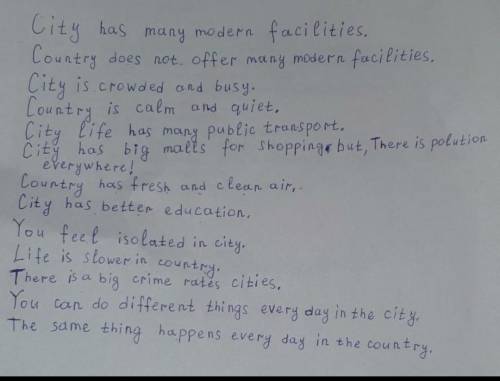 City has many modern facilities.
Country does not offer many modern facilities.
City is crowded and busy.
Country is calm and quiet.
City life has many public transport.
City has big malts for shopping, but, There is polution
everywhere!
Country has fresh and clean air.
City has better education.
You feel isolated in city.
Life is slower in country.
There is a big crime rates cities.
You can do different things every day in the city.
The same thing happens every day in the country.